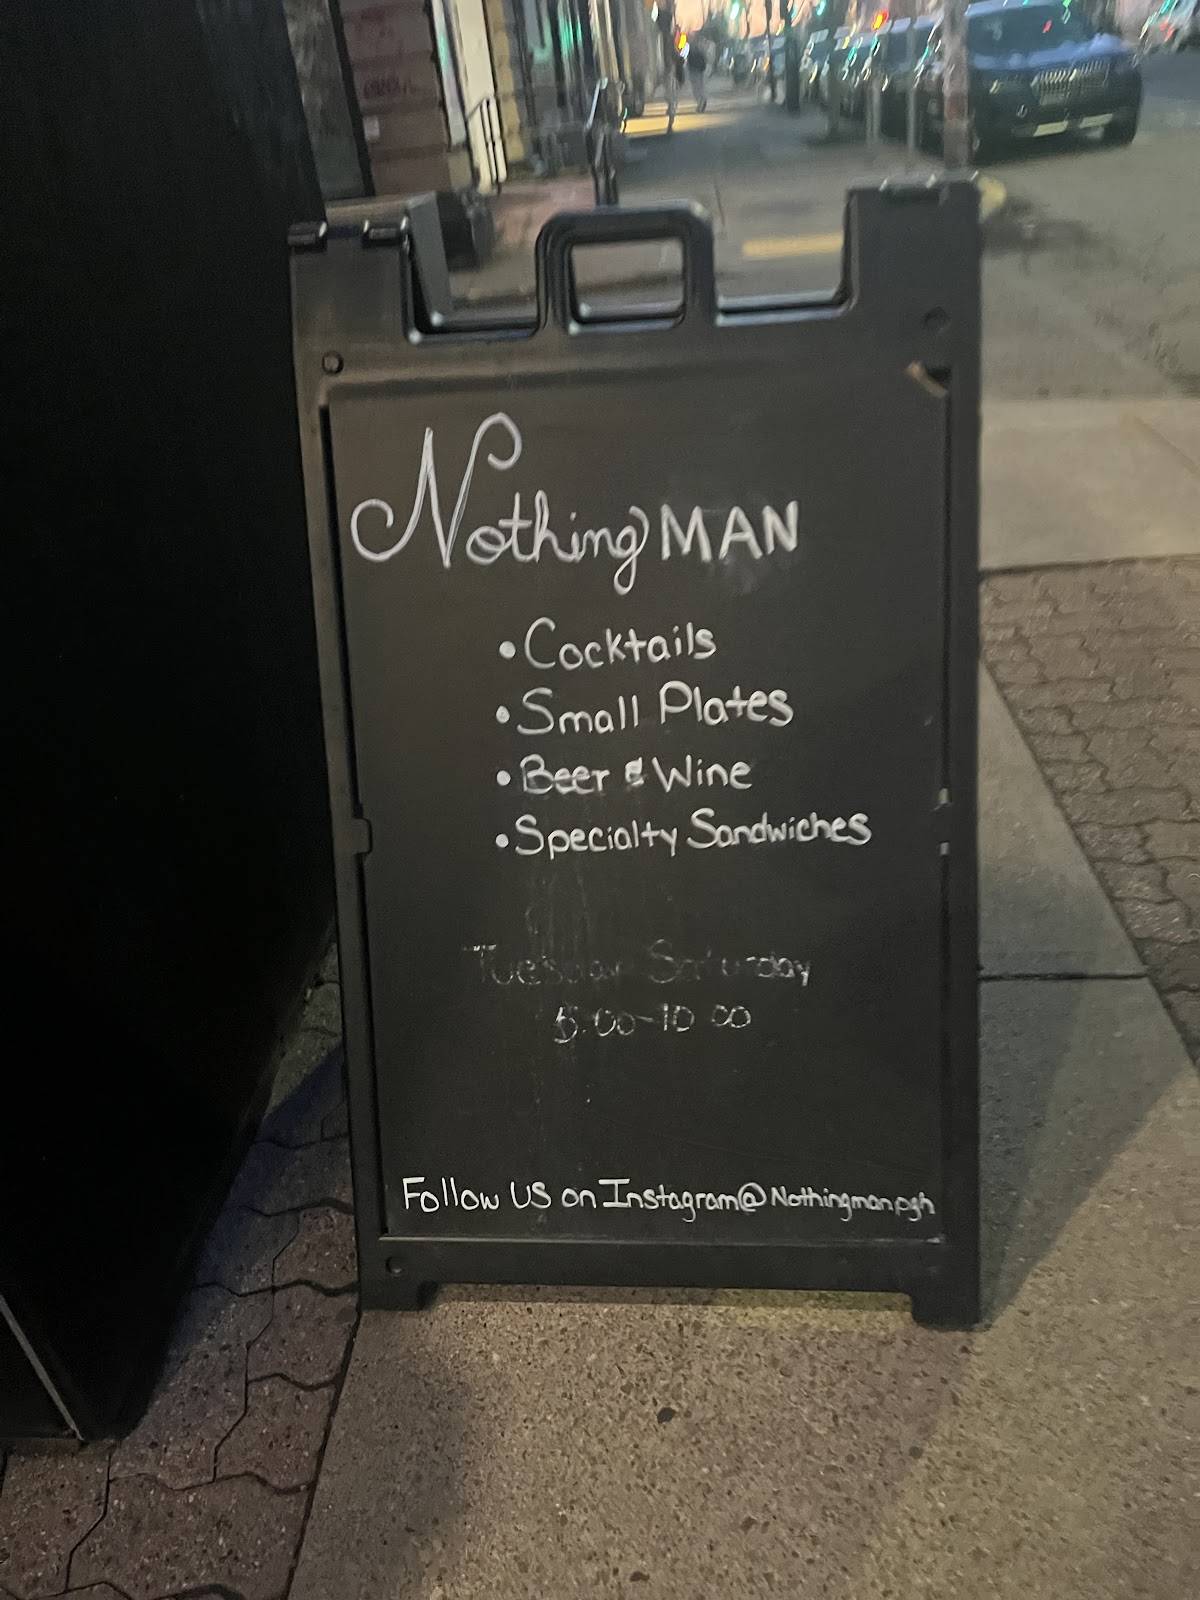 Nothing MAN
• Cocktails
• Small Plates
• Beer & Wine
• Specialty Sandwiches
Tuesday Saturday
5:00-10 00
Follow US on Instagram@Nothingmanpgh